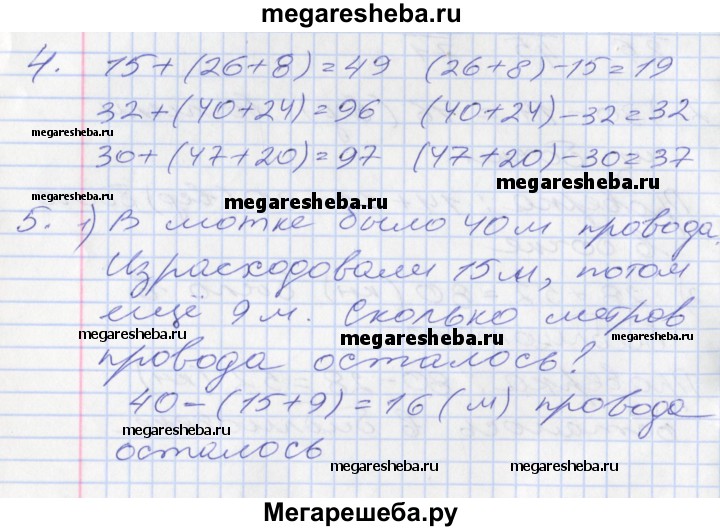 megaresheba.ru
4. 15+(26+8)=49 (26+8)-15=19
32+(40+24)=96 (40+24)-32=32
megaresheba.ru
30+(47+20)=97 (47+20)-30=37
megaresheba.ru
megaresheba.ru
megaresheba.ru
5. 1) В мотке было 40 м провода.
Израсходовали 15 м, потом
ещё 9 м. Сколько метров
megaresheba.ru
megaresheba.ru
провода осталось?
40-(15+9)=16 (м) провода
megaresheba.ru
осталось
megaresheba.ru
megaresheba.ru
Мегарешеба.ру